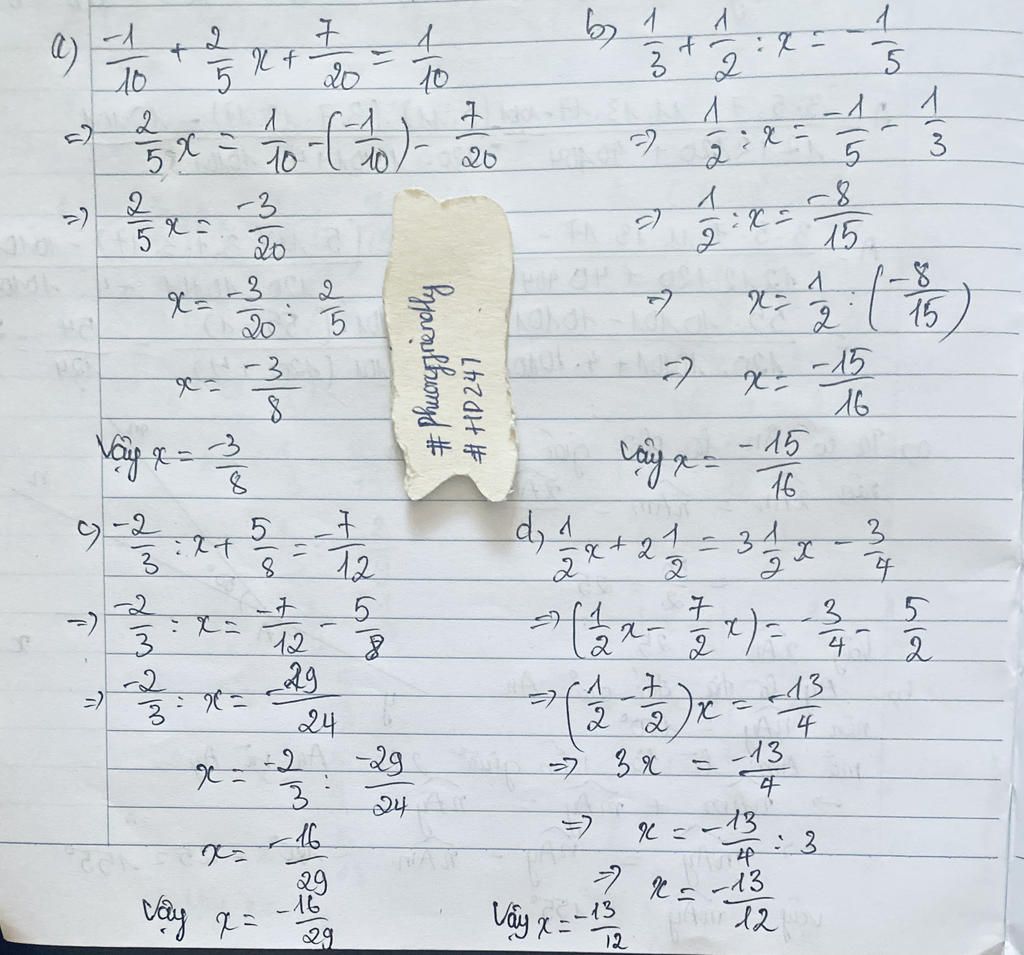 a) -1/10 + 2/5 x + 7/20 = 1/10
=> 2/5 x = 1/10 - (-1/10) - 7/20
=> 2/5 x = -3/20
x = -3/20 : 2/5
x = -3/8
Vậy x = -3/8
b) 1/3 + 1/2 : x = -1/5
=> 1/2 : x = -1/5 - 1/3
=> 1/2 : x = -8/15
=> x = 1/2 : (-8/15)
=> x = -15/16
Vậy x = -15/16
#phuongjnaroffy
#HD247
c) -2/3 : x + 5/8 = -7/12
=> -2/3 : x = -7/12 - 5/8
=> -2/3 : x = -29/24
x = -2/3 : -29/24
x = -16/29
Vậy x = -16/29
d) 1/2 x + 2 1/2 = 3 1/2 x - 3/4
=> (1/2 x - 7/2 x) = -3/4 - 5/2
=> (1/2 - 7/2) x = -13/4
=> 3x = -13/4
=> x = -13/4 : 3
=> x = -13/12
Vậy x = -13/12